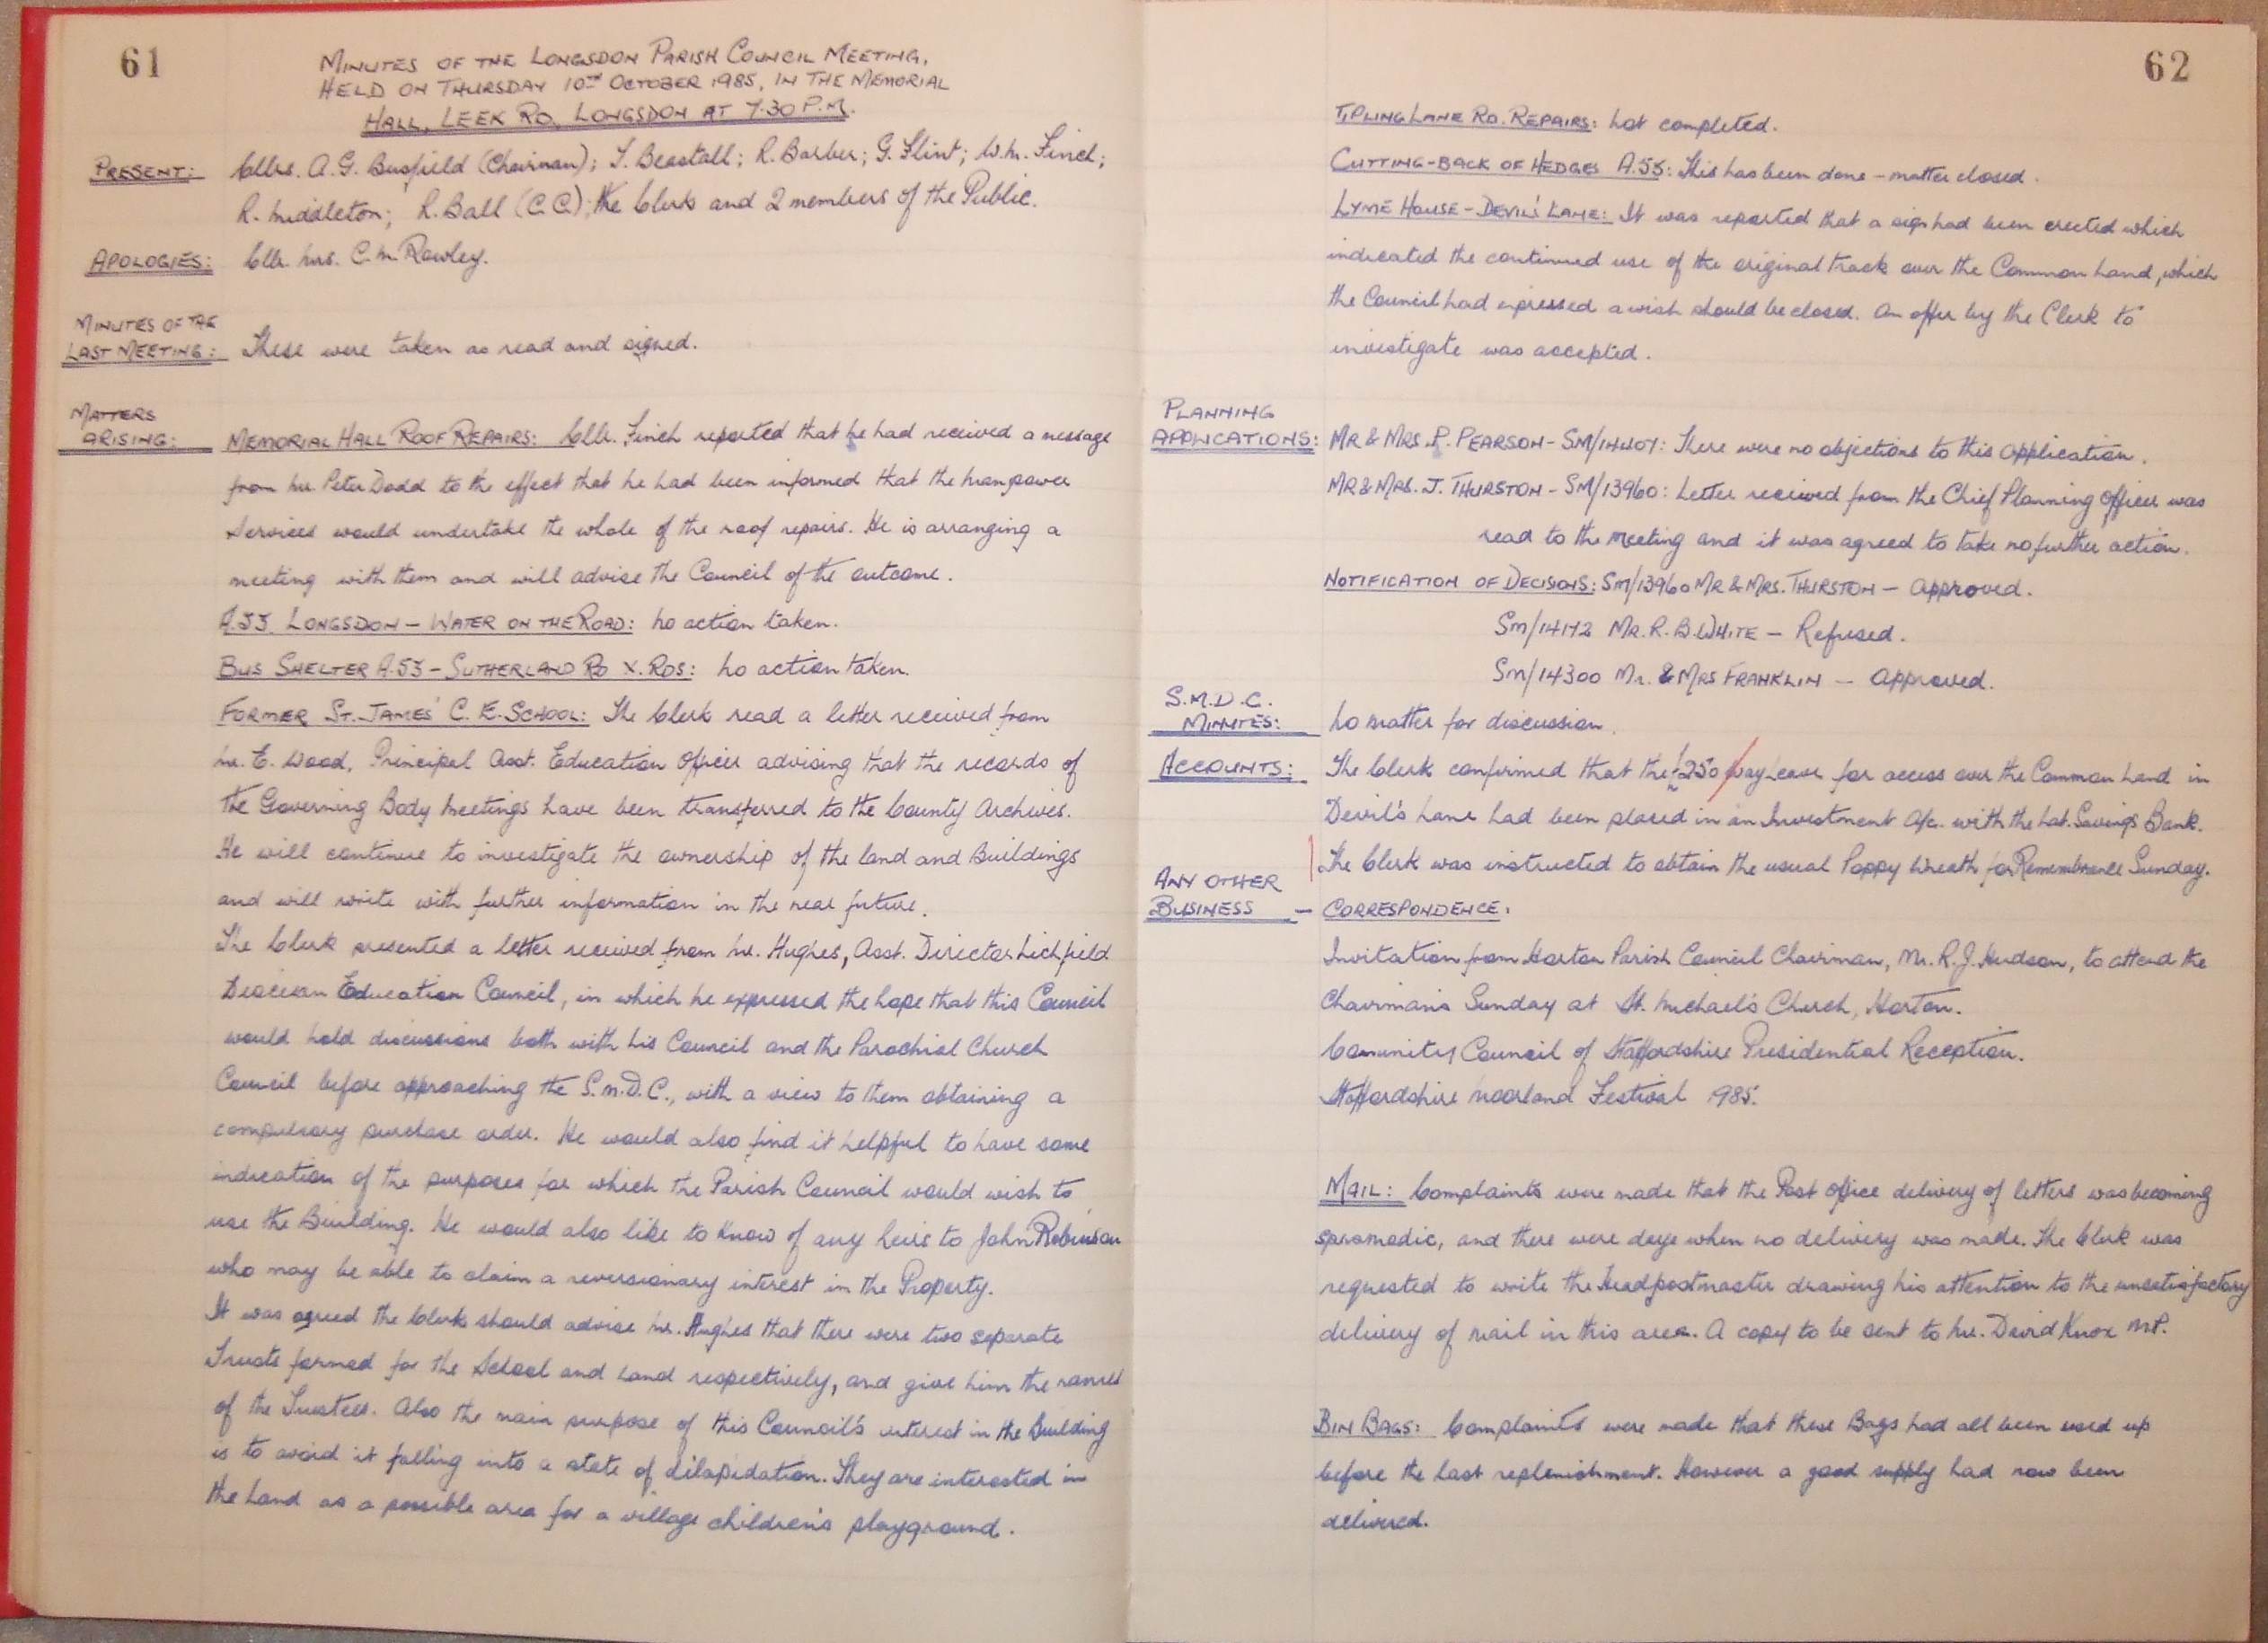 61
MINUTES OF THE LONGSDON PARISH COUNCIL MEETING,
HELD ON THURSDAY 10TH OCTOBER 1985, IN THE MEMORIAL
HALL, LEEK RD, LONGSDON AT 7.30 P.M.
PRESENT: Cllrs. A.G. Busfield (Chairman); T. Beastall; R. Barber; G. Flint; W.M. Finch;
R. Middleton; R. Ball (C.C.); the Clerk and 2 members of the Public.
APOLOGIES: Cllr. Mrs. C.M. Rowley.
MINUTES OF THE
LAST MEETING: These were taken as read and signed.
MATTERS
ARISING: MEMORIAL HALL ROOF REPAIRS: Cllr. Finch reported that he had received a message
from Mr. Peter Dodd to the effect that he had been informed that the Manpower
Services would undertake the whole of the roof repairs. He is arranging a
meeting with them and will advise the Council of the outcome.
A.53 LONGSDON – WATER ON THE ROAD: No action taken.
BUS SHELTER A.53 – SUTHERLAND RD X. RDS: No action taken.
FORMER ST. JAMES' C.E. SCHOOL: The Clerk read a letter received from
Mr. E. Wood, Principal Asst. Education Officer advising that the records of
the Governing Body Meetings have been transferred to the County Archives.
He will continue to investigate the ownership of the land and Buildings
and will write with further information in the near future.
The Clerk presented a letter received from Mr. Hughes, Asst. Director Lichfield
Diocesan Education Council, in which he expressed the hope that this Council
would hold discussions both with his Council and the Parochial Church
Council before approaching the S.M.D.C., with a view to them obtaining a
compulsory purchase order. He would also find it helpful to have some
indication of the purposes for which the Parish Council would wish to
use the Building. He would also like to know of any heirs to John Robinson
who may be able to claim a reversionary interest in the Property.
It was agreed the Clerk should advise Mr. Hughes that there were two separate
Trusts formed for the School and Land respectively, and give him the names
of the Trustees. Also the main purpose of this Council's interest in the Building
is to avoid it falling into a state of dilapidation. They are interested in
the Land as a possible area for a village children's playground.
62
TIPLING LANE RD. REPAIRS: Not completed.
CUTTING-BACK OF HEDGES A.53: This has been done – matter closed.
LYME HOUSE – DEVIL'S LANE: It was reported that a sign had been erected which
indicated the continued use of the original track over the Common Land, which
the Council had expressed a wish should be closed. An offer by the Clerk to
investigate was accepted.
PLANNING
APPLICATIONS: MR & MRS. P. PEARSON – SM/14407: There were no objections to this Application.
MR & MRS. J. THURSTON – SM/13960: Letter received from the Chief Planning Officer was
read to the Meeting and it was agreed to take no further action.
NOTIFICATION OF DECISIONS: SM/13960 MR & MRS. THURSTON – Approved.
SM/14172 MR. R. B. WHITE – Refused.
SM/14300 Mr. & MRS FRANKLIN – Approved.
S.M.D.C.
MINUTES: No matter for discussion.
ACCOUNTS: The Clerk confirmed that the £250 wayleave for access over the Common Land in
Devil's Lane had been placed in an Investment A/c. with the Nat. Savings Bank.
The Clerk was instructed to obtain the usual Poppy Wreath for Remembrance Sunday.
ANY OTHER
BUSINESS – CORRESPONDENCE:
Invitation from Horton Parish Council Chairman, Mr. R.J. Hudson, to attend the
Chairman's Sunday at St. Michael's Church, Horton.
Comunity Council of Staffordshire Presidential Reception.
Staffordshire Moorland Festival 1985.
MAIL: Complaints were made that the Post Office delivery of letters was becoming
spromodic, and there were days when no delivery was made. The Clerk was
requested to write the Headpostmaster drawing his attention to the unsatisfactory
delivery of mail in this area. A copy to be sent to Mr. David Knox MP.
BIN BAGS: Complaints were made that these Bags had all been used up
before the last replenishment. However a good supply had now been
delivered.